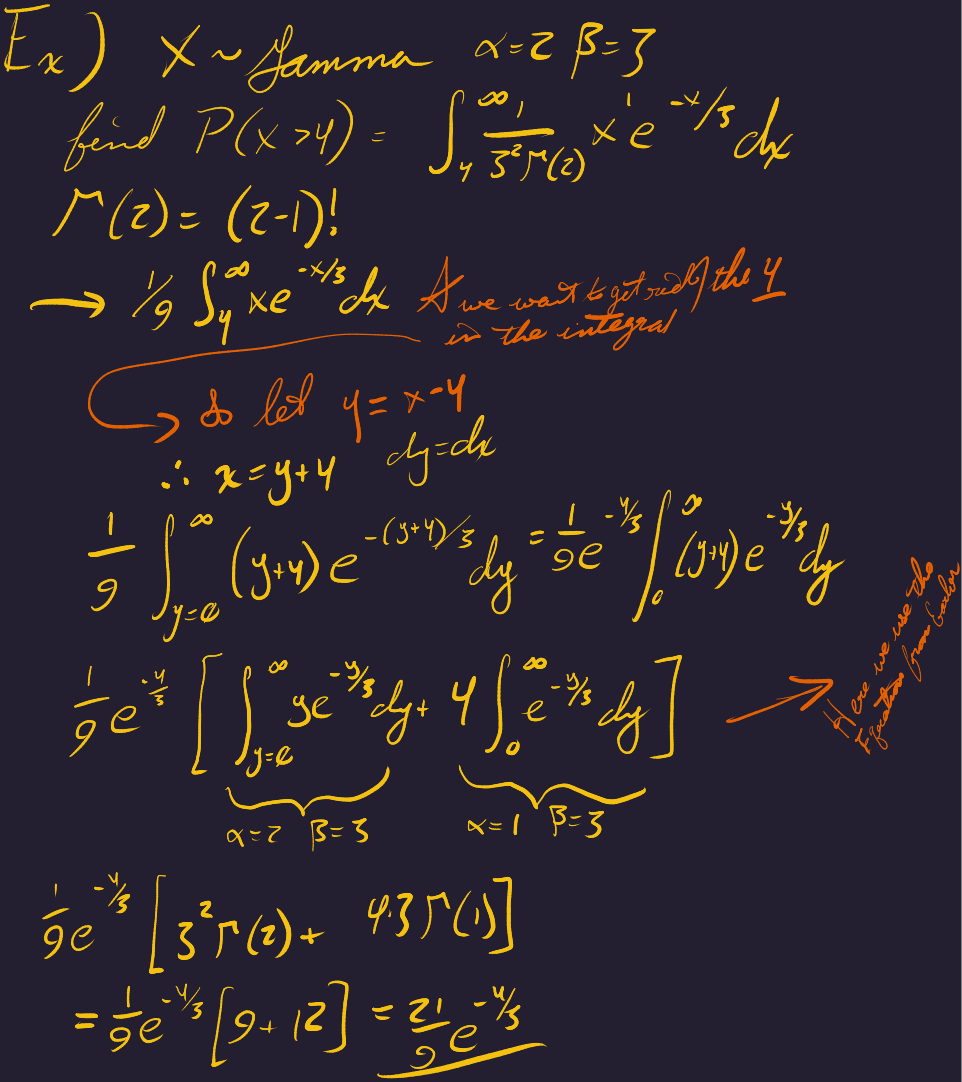 Ex) X ~ Gamma α=2 β=3
find P(x>4) = ∫_4^∞ 1/(3²Γ(2)) x¹ e^(-x/3) dx
Γ(2) = (2-1)!
→ 1/9 ∫_4^∞ xe^(-x/3) dx we want to get rid of the 4
in the integral
so let y = x-4
∴ x = y+4 dy=dx
1/9 ∫_(y=0)^∞ (y+4) e^(-(y+4)/3) dy = 1/9 e^(-4/3) ∫_0^∞ (y+4) e^(-y/3) dy
1/9 e^(-4/3) [ ∫_(y=0)^∞ ye^(-y/3) dy + 4 ∫_0^∞ e^(-y/3) dy ] → Here we use the
Equation from Earlier
α=2 β=3 α=1 β=3
1/9 e^(-4/3) [ 3²Γ(2) + 4·3 Γ(1) ]
= 1/9 e^(-4/3) [ 9 + 12 ] = 21/9 e^(-4/3)